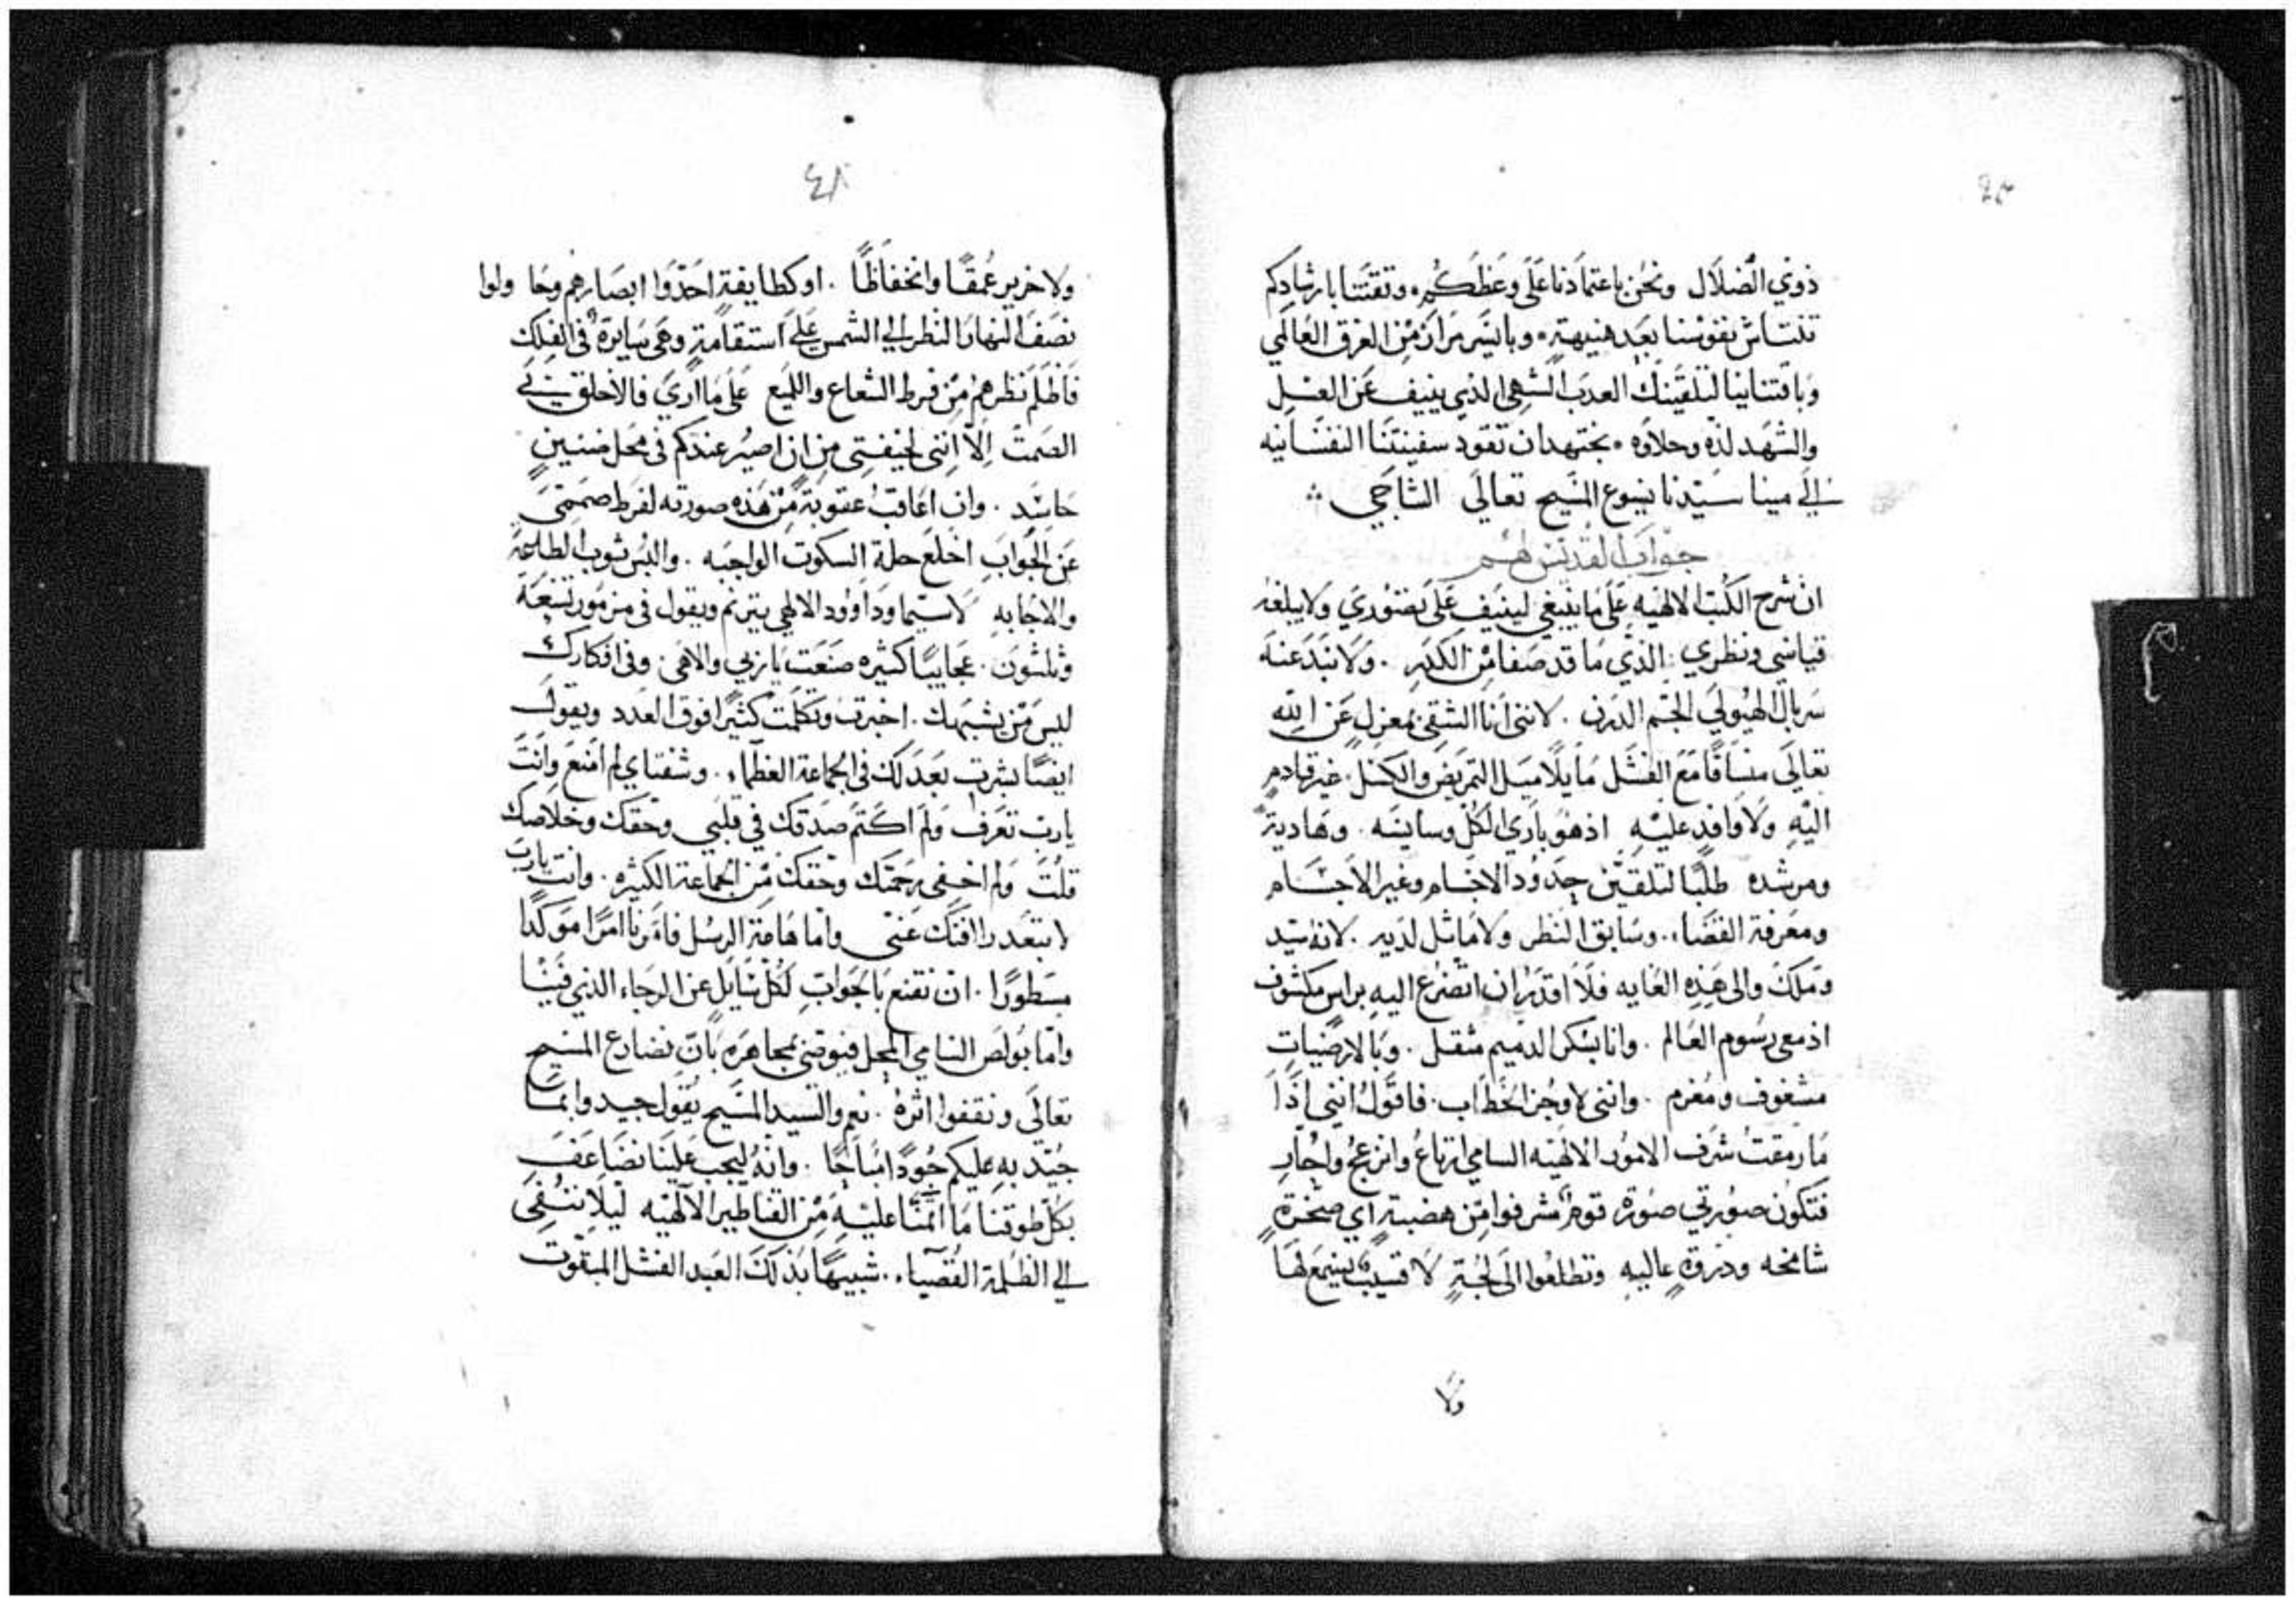 ذوي الضلال ونحن باعتمادنا على وعظكم وتقتنا بارشادكم
تنتاش نفوسنا بعد هنيهة وبايسر مرار من الغرق العالمي
وباقتناينا لتلقينك العدب الشهي الذي ينيف عن العسل
والشهد لذه وحلاوه نجتهد ان تقود سفينتنا النفسانيه
الي مينا سيدنا يسوع المسيح تعالى الشاجي
جواب القديس لهم
ان شرح الكتب الالهيه على ما ينبغي لينيف على تصوري ولا يبلغه
قياسي ونظري الذي ما قد صفا من الكدر ولا نبد عنه
سربال الهيولي الجسم الدرن لانني انا الشقي بمعزل عن الله
تعالى منساقا مع الفشل مايلا ميل التمريض والكسل غير قادم
اليه ولا وافد عليه اذ هو باري الكل وسايسه وهاديه
ومرشده طلبا لتلقين حدود الاجسام وغير الاجسام
ومعرفة القضاء وسابق النظر ولا ماثل لديه لانه سيد
وملك والى هذه الغايه فلا اقدر ان اتضرع اليه براس مكشوف
اذ معي رسوم العالم وانا بسكر الدميم مثقل وبالارضيات
مشغوف ومغرم وانني لاوجز الخطاب فاقول انني اذا
ما رمقت شرف الامور الالهيه السامي ارتاع وانزعج واحار
فتكون صورتي صورة قوم اشرفوا من هضبة اي صخرة
شامخه وذروة عاليه وتطلعوا الى لجة لا قسيب يسمع لها
ولا
٤٨
ولا خرير عمقا وانخفاظا او كطايفة احدوا ابصارهم وحاولوا
نصف النهار النظر الي الشمس علي استقامة وهي سايرة في الفلك
فاظلم نظرهم من فرط الشعاع واللميع على ما اري فالاخلق بي
الصمت الا انني لخيفتي من ان اصير عندكم في محل ضنين
حاسد وان اعاقب عقوبة من هذه صورته لفرط صمتي
عن الجواب اخلع حلة السكوت الواجبه والبس ثوب الطاعة
والاجابه لا سيما وداوود الالهي يترنم ويقول في مزمور تسعة
وثلثون عجايبا كثيره صنعت يا ربي والاهي وفي افكارك
ليس من يشبهك اخبرت وتكلمت كثيرا فوق العدد ويقول
ايضا بشرت بعدلك في الجماعة العظماء وشفتاي لم امنع وانت
يارب تعرف ولم اكتم صدقك في قلبي وحقك وخلاصك
قلت ولم اخفي رحمتك وحقك من الجماعة الكثيره وانت يارب
لا تبعد رافتك عني واما هامة الرسل فامرنا امرا موكدا
مسطورا ان نقنع بالجواب لكل سايل عن الرجاء الذي فينا
واما بولص السامي المحل فيوصي مجاهرة بان نضارع المسيح
تعالى ونقفوا اثره نعم والسيد المسيح يقول جيد وانما
جيد به عليكم جودوا مباحا وانه ليجب علينا نضاعف
بكل طوقنا ما ائتمنا عليه من القناطير الالهيه ليلا ننفي
الي الظلمة القصياء شبيها بذلك العبد الفشل الممقوت